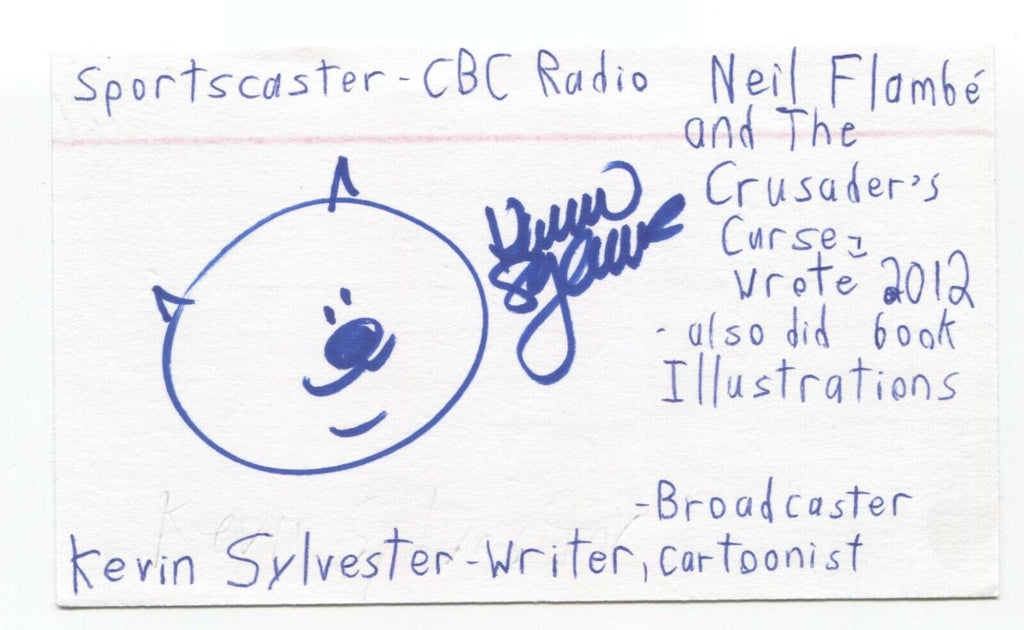 Sportscaster - CBC Radio
Neil Flambé
and The
Crusader's
Curse -
wrote 2012
- also did book
Illustrations
Kevin
Sylvester
- Broadcaster
Kevin Sylvester - Writer, cartoonist